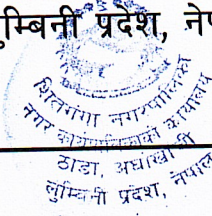 लुम्बिनी प्रदेश, नेपाल
शितगंगा नगरपालिका
नगर कार्यपालिकाको कार्यालय
ठाडा, अर्घाखाँची
लुम्बिनी प्रदेश, नेपाल